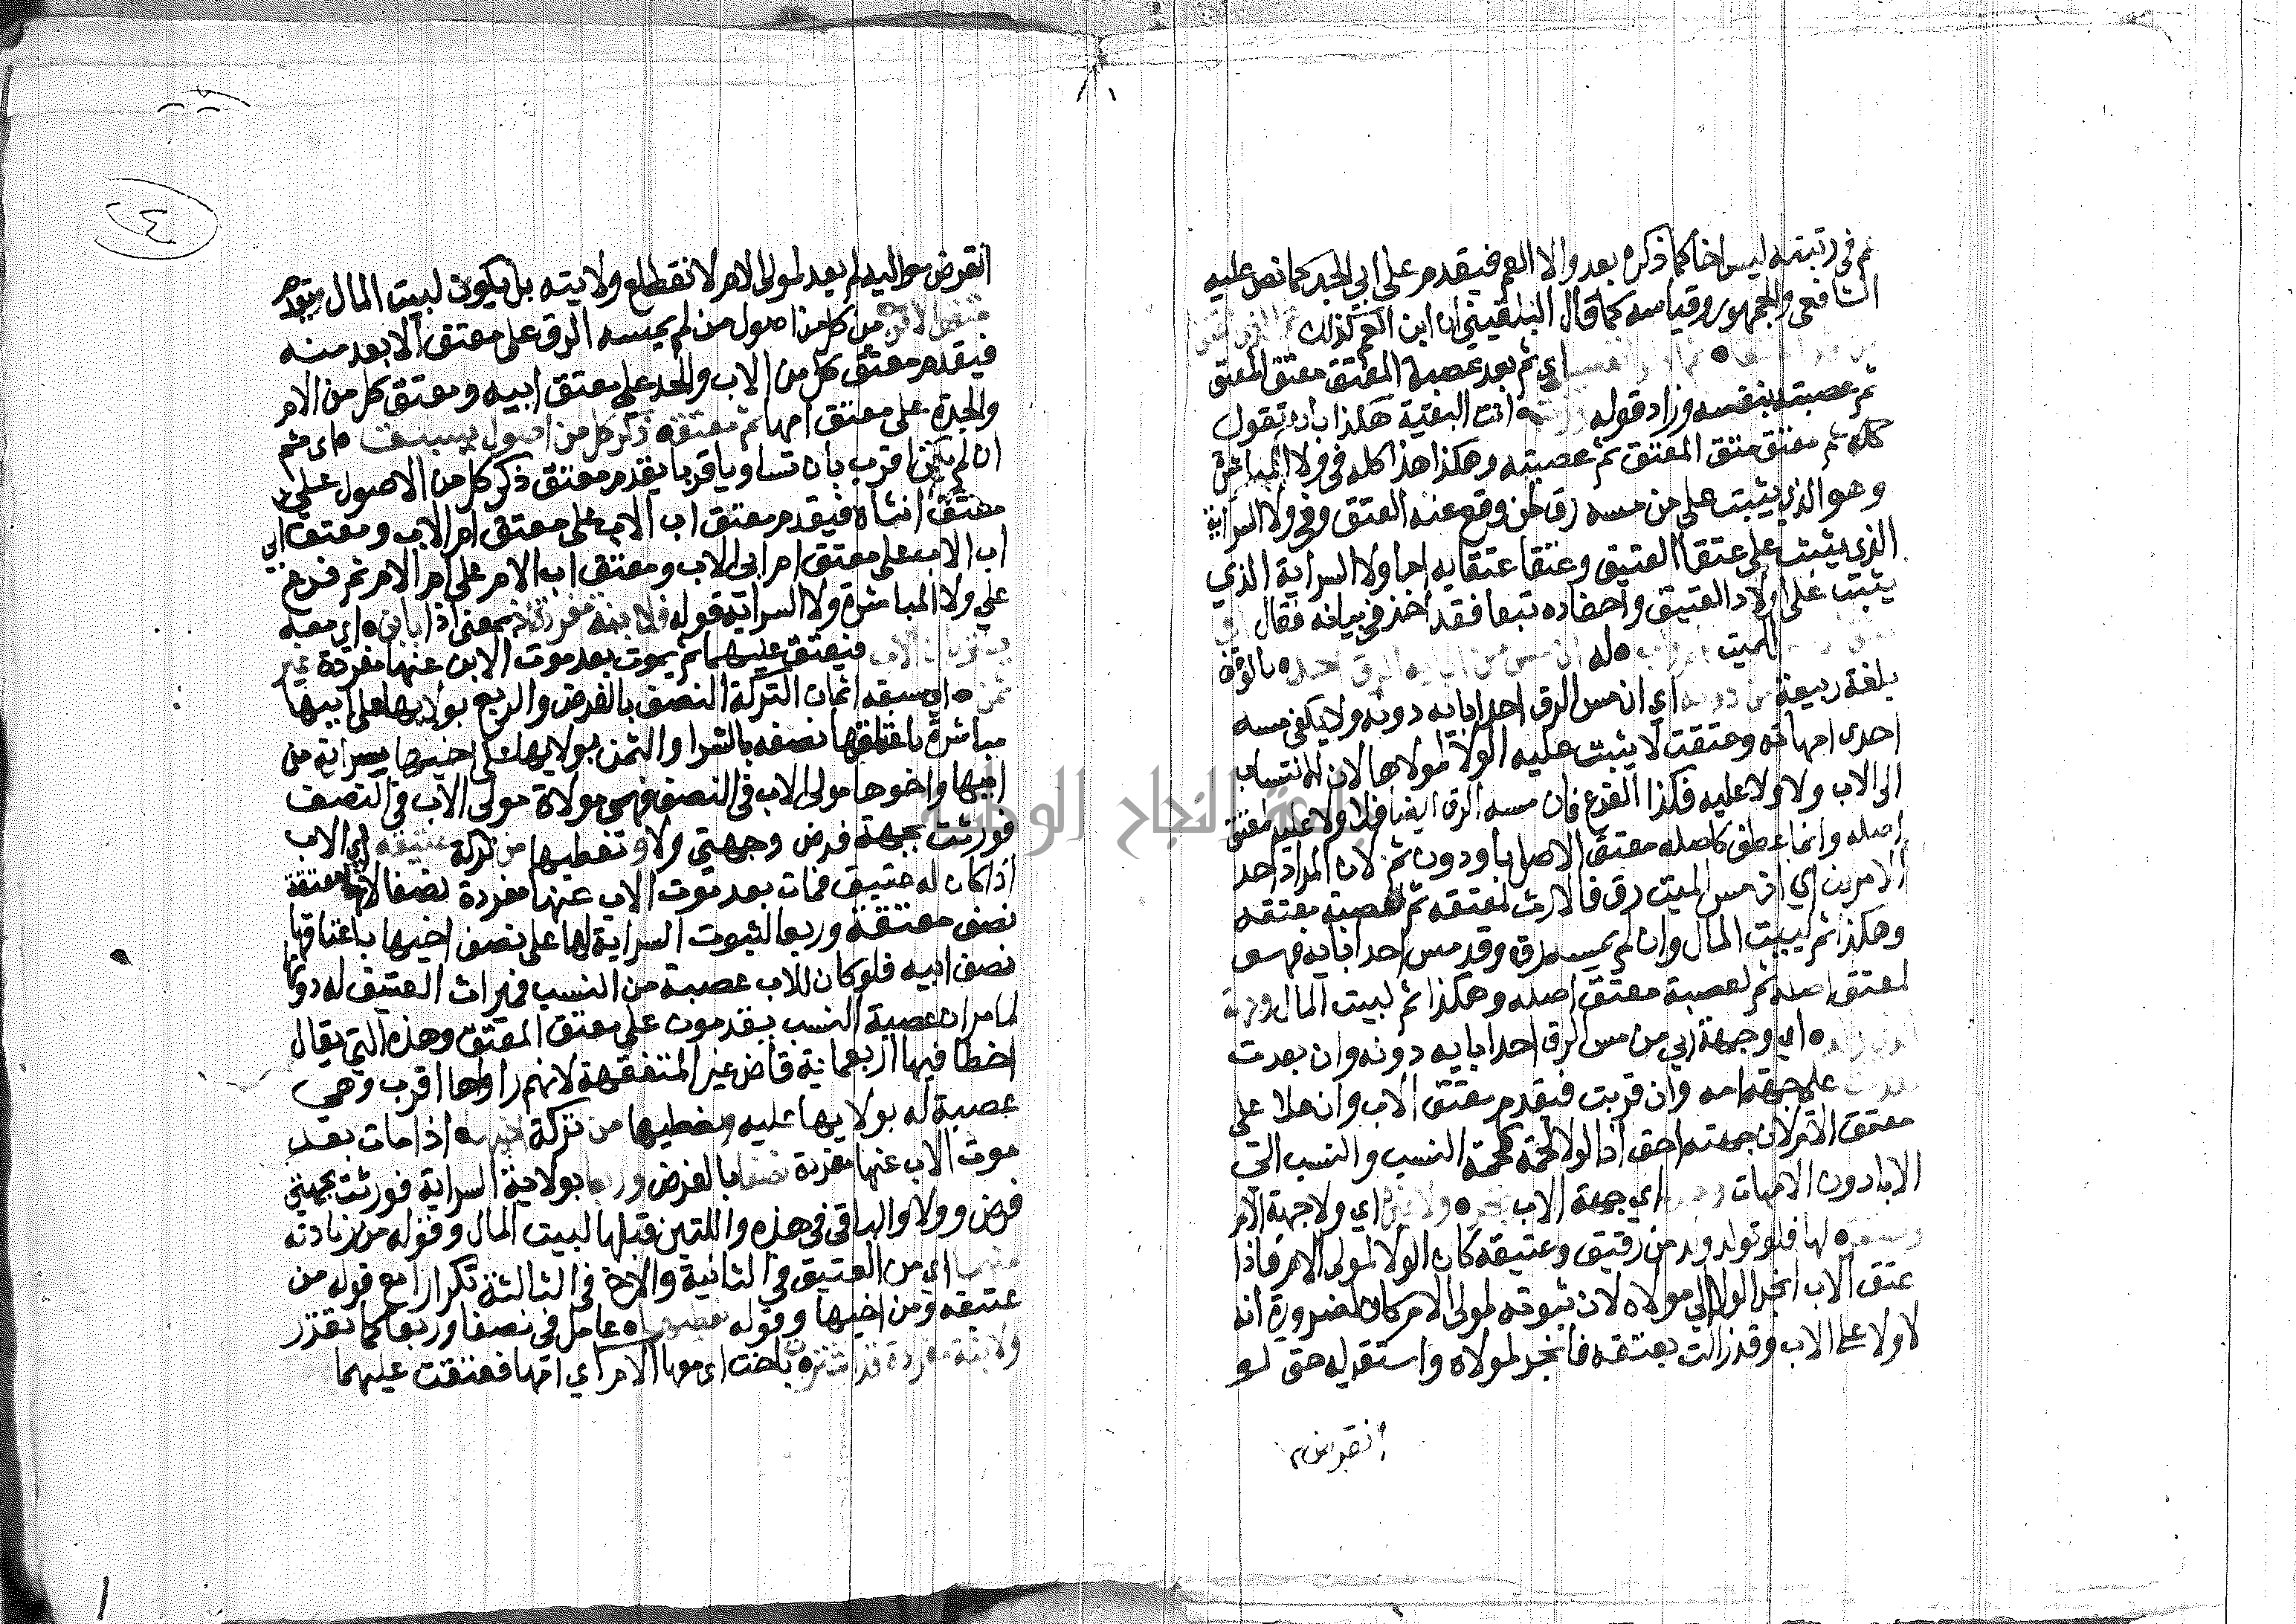 ثم في رتبته ليس اخا كما ذكره بعد والا العم فيقدم على ابي الجد كما نص عليه
الشافعي والجمهور وقياسه كما قال البلقيني ان ابن العم كذلك
اي ثم بعد عصبة المعتق معتق المعتق
ثم عصبته بنفسه وزاد قوله انت البقية هكذا بان تقول
كله ثم معتق معتق المعتق ثم عصبته وهكذا هذا كله في ولا المباشرة
وهو الذي يثبت على من مسه رق لمن وقع عنه العتق وفي ولا السراية
الذي يثبت على عتقا العتيق وعتقا عتقايه اما ولا السراية الذي
يثبت على اولاد العتيق واحفاده تبعا فقد اخذ في بيانه فقال
الميت له ان مس من ابايه الرق احده بالوقف
بلغة ربيعة من دونه اي ان مس الرق احد ابايه دونه ولا يكفي مسه
احدى امهاته وعتقت لا يثبت عليه الولا لمولاها لان الانتساب
الى الاب ولا ولا عليه فكذا الفرع فان مسه الرق ايضا فلا ولا عليه لمعتق
اصله وانما عطف كاصله معتق الاصل باو دون ثم لان المراد احد
الامرين اي ان مس الميت رق فالارث لمعتقه ثم لعصبة معتقه
وهكذا ثم لبيت المال وان لم يمسه رق وقد مس احد ابايه فهو
لمعتق اصله ثم لعصبة معتق اصله وهكذا ثم لبيت المال
اي وجهة ابي من مس الرق احد ابايه دونه وان بعدت
على جهة امه وان قربت فيقدم معتق الاب وان علا على
معتق الام لان جهته احق اذا لولا لحمة كلحمة النسب والنسب الى
الابا دون الامهات اي جهة الاب ولا اي ولا جهة الام
لها فلو تولد ولد من رقيق وعتيقة كان الولا لمولى الام فاذا
عتق الاب انجر الولا الى مولاه لان ثبوته لمولى الام كان لضرورة انه
لا ولا على الاب وقد زالت بعتقه فانجر لمولاه واستقر له حتى لو
انقرض م
٤
انقرض مواليه لم يعد لمولى الام لانقطاع ولايته بل يكون لبيت المال ويقدم
معتق الاقرب من كل من اصول من لم يمسه الرق على معتق الابعد منه
فيقدم معتق كل من الاب والجد على معتق ابيه ومعتق كل من الام
والجدة على معتق امها ثم معتقه ذكر كل من اصول اي ثم
ان لم يكن اقرب بان تساويا قربا يقدم معتق ذكر كل من الاصول على
معتق انثاه فيقدم معتق اب الاب على معتق ام الاب ومعتق ابي
اب الاب على معتق ام ابي الاب ومعتق اب الام على ام الام ثم فرع
على ولا المباشرة ولا السراية قوله فلابنة مفردة بمعنى اذا بابن اي معه
يشتريان الاب فيعتق عليهما ثم يموت بعد موت الابن عنها مفردة غير
ثمن اي سبعة اثمان التركة النصف بالفرض والربع بولايها على ابيها
مباشرة باعتاقها نصفه بالشرا والثمن بولايها على اخيها بسراية من
ابيها واخوها مولى الاب في النصف فهي مولاة مولى الاب في النصف
فورثت بجهة فرض وجهتي ولا وتعطيها من تركة عتيقه اي الاب
اذا كان له عتيق فمات بعد موت الاب عنها مفردة نصفا لانها معتقة
نصف معتقه وربعا لثبوت السراية لها على نصف اخيها باعتاقها
نصف ابيه فلو كان للاب عصبة من النسب فميراث العتيق له دونها
لما مر ان عصبة النسب يقدمون على معتق المعتق وهذه التي يقال
اخطا فيها اربعمائة قاض غير المتفقهة لانهم راوها اقرب وهي
عصبة له بولايها عليه وتعطيها من تركة اذا مات بعد
موت الاب عنها مفردة نصفا بالفرض وربعا بولاية السراية فورثت بجهتي
فرض وولا والباقي في هذه واللتين قبلها لبيت المال وقوله من زيادته
منهما اي من العتيق في الثانية والاخ في الثالثة تكرارا مع قوله من
عتيقه ومن اخيها وقوله عامل في نصفا وربعا كما تقرر
ولابنة مفردة باخت اي معها الام اي امها فعتقت عليهما
جامعة النجاح الوطنية